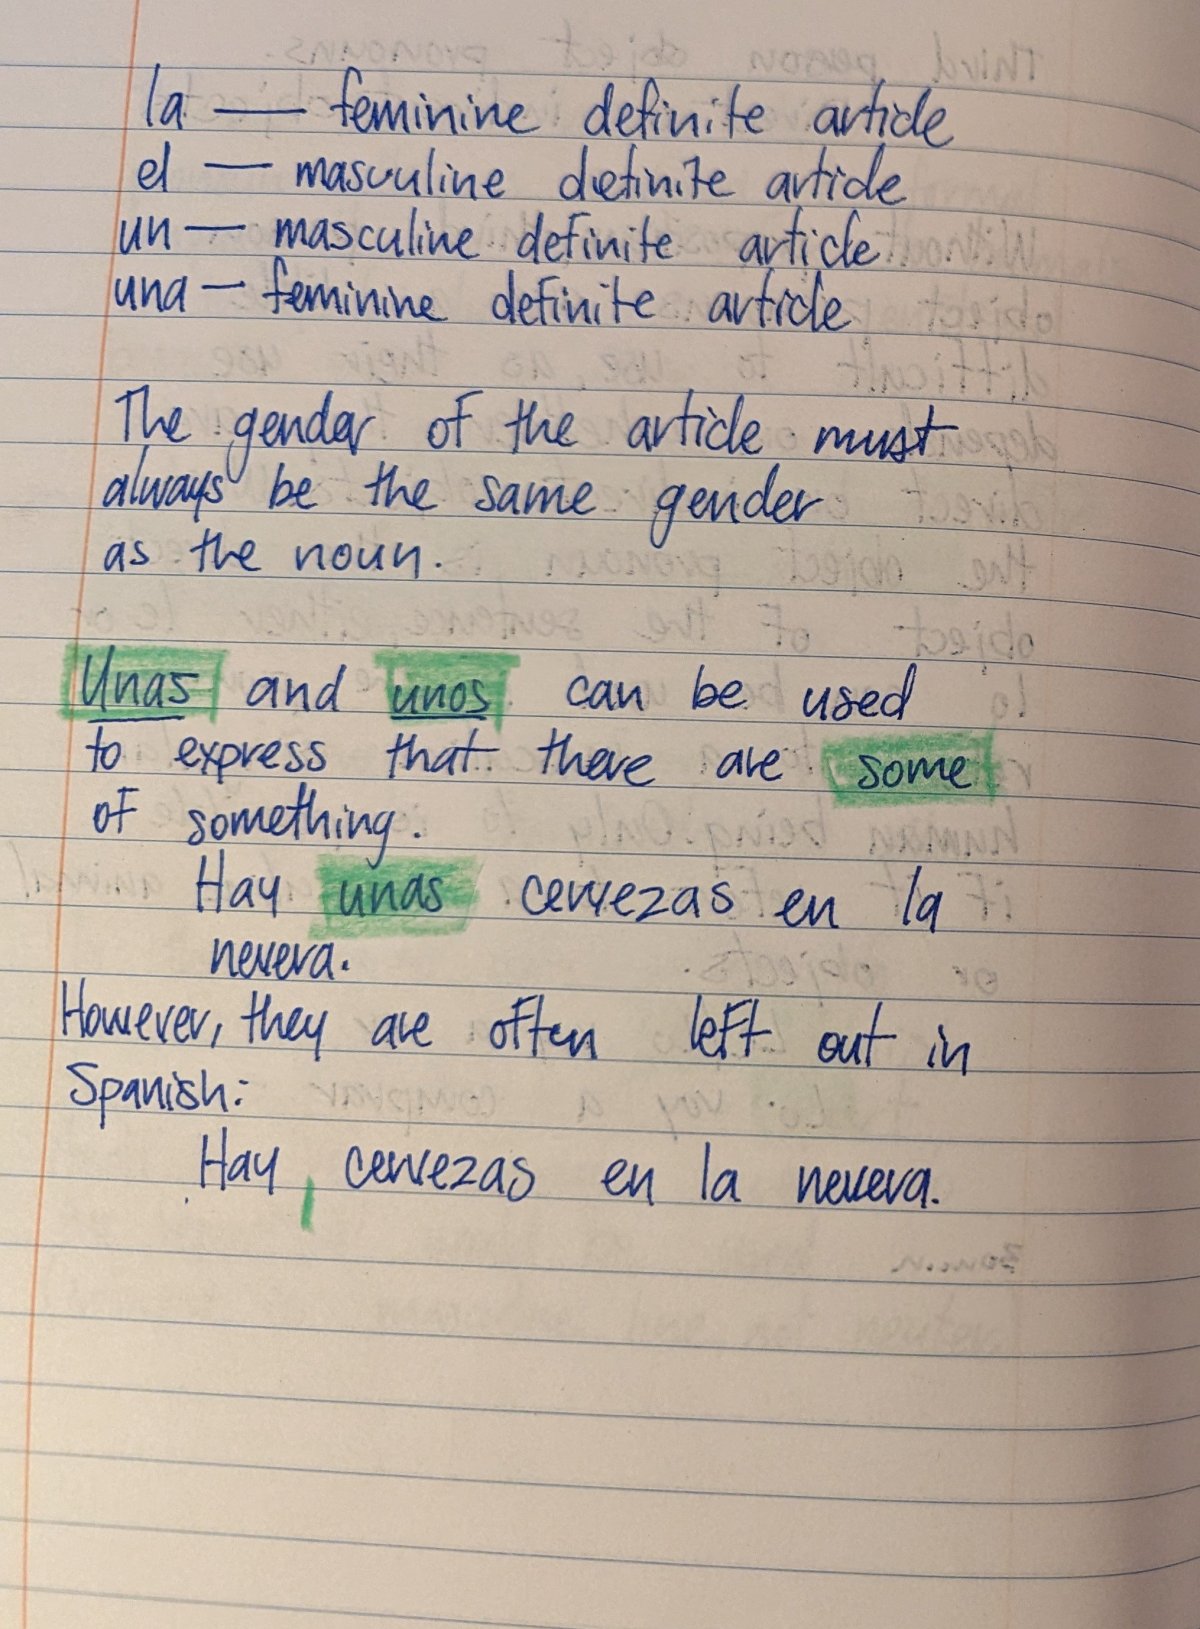 la — feminine definite article
el — masculine definite article
un — masculine definite article
una — feminine definite article
The gender of the article must
always be the same gender
as the noun.
Unas and unos can be used
to express that there are some
of something.
Hay unas cervezas en la
nevera.
However, they are often left out in
Spanish:
Hay cervezas en la nevera.